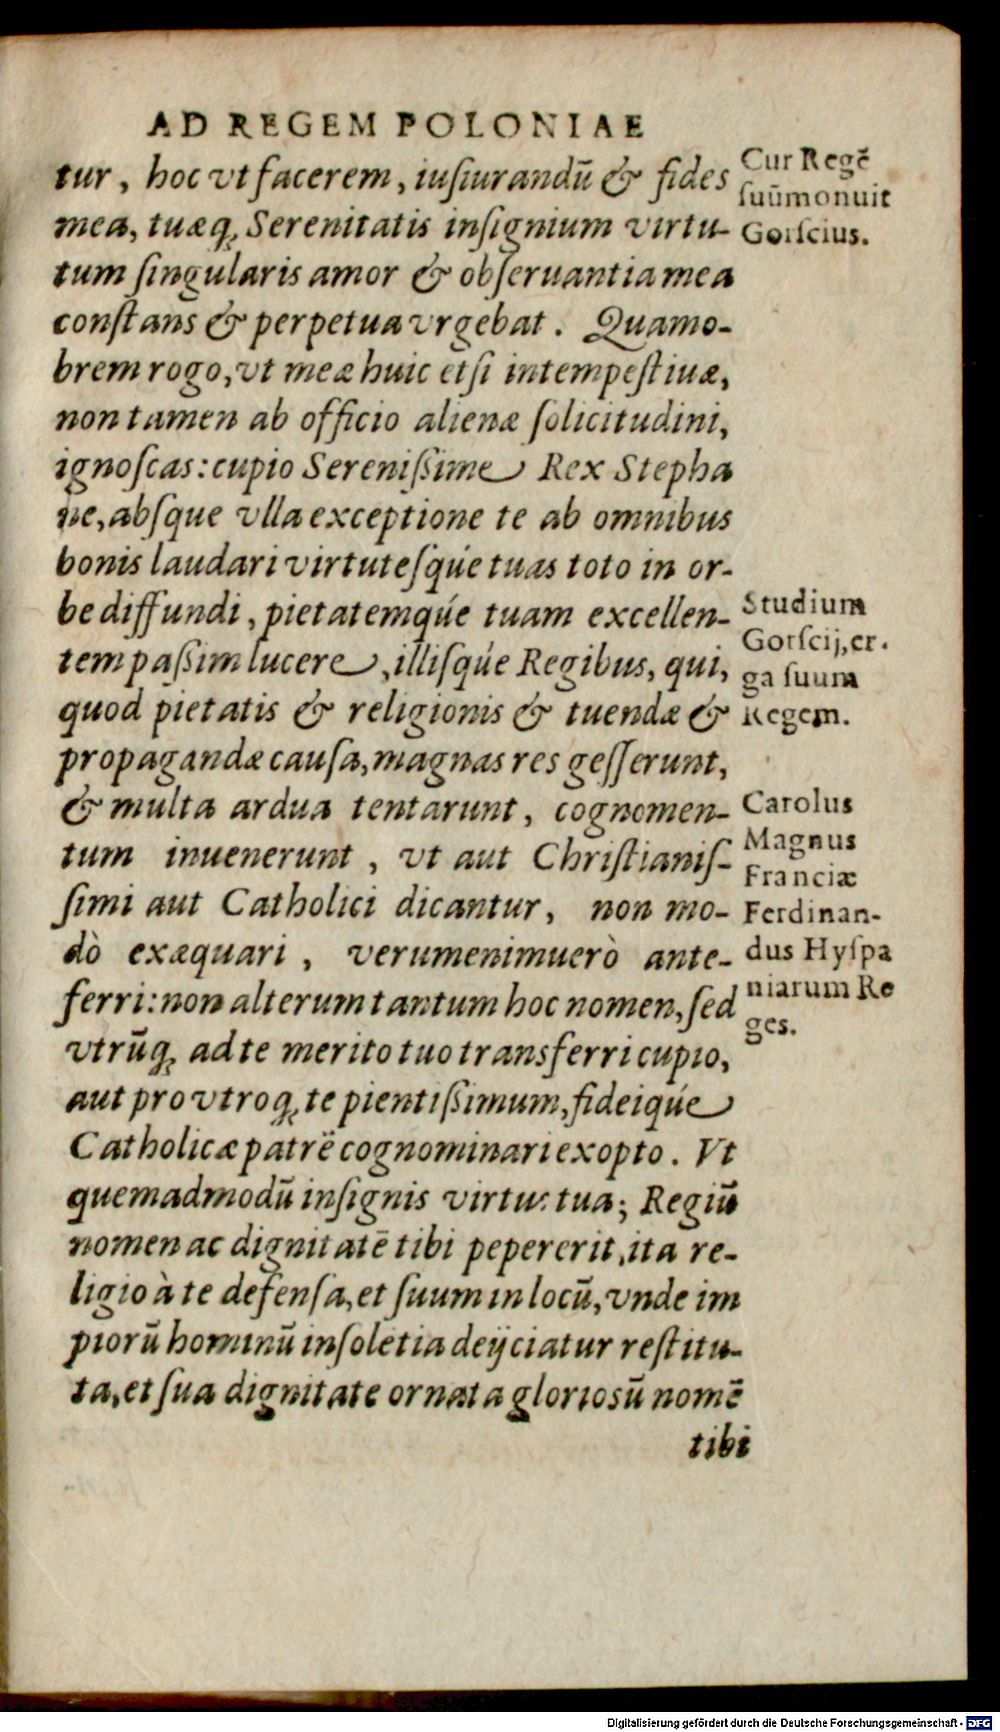 AD REGEM POLONIAE
tur, hoc vt facerem, iuſiurandū & fides
mea, tuæq; Serenitatis inſignium virtu-
tum ſingularis amor & obſeruantia mea
conſtans & perpetua vrgebat. Quamo-
brem rogo, vt meæ huic etſi intempeſtiuæ,
non tamen ab officio alienæ ſolicitudini,
ignoſcas: cupio Sereniſſime Rex Stepha
ne, abſque vlla exceptione te ab omnibus
bonis laudari virtuteſq́ue tuas toto in or-
be diffundi, pietatemq́ue tuam excellen-
tem paſſim lucere, illiſq́ue Regibus, qui,
quod pietatis & religionis & tuendæ &
propagandæ cauſa, magnas res geſſerunt,
& multa ardua tentarunt, cognomen-
tum inuenerunt, vt aut Chriſtianiſ-
ſimi aut Catholici dicantur, non mo-
dò exæquari, verumenimuerò ante-
ferri: non alterum tantum hoc nomen, ſed
vtrūq; ad te merito tuo transferri cupio,
aut pro vtroq; te pientiſſimum, fideiq́ue
Catholicæ patrē cognominari exopto. Vt
quemadmodū inſignis virtus tua; Regiū
nomen ac dignitatē tibi pepererit, ita re-
ligio à te defenſa, et ſuum in locū, vnde im
piorū hominū inſolētia deijciatur reſtitu-
ta, et ſua dignitate ornata glorioſū nomē
tibi
Cur Regē
ſuūmonuit
Gorſcius.
Studium
Gorſcij, er-
ga ſuum
Regem.
Carolus
Magnus
Franciæ
Ferdinan-
dus Hyſpa
niarum Re
ges.
Digitalisierung gefördert durch die Deutsche Forschungsgemeinschaft - DFG